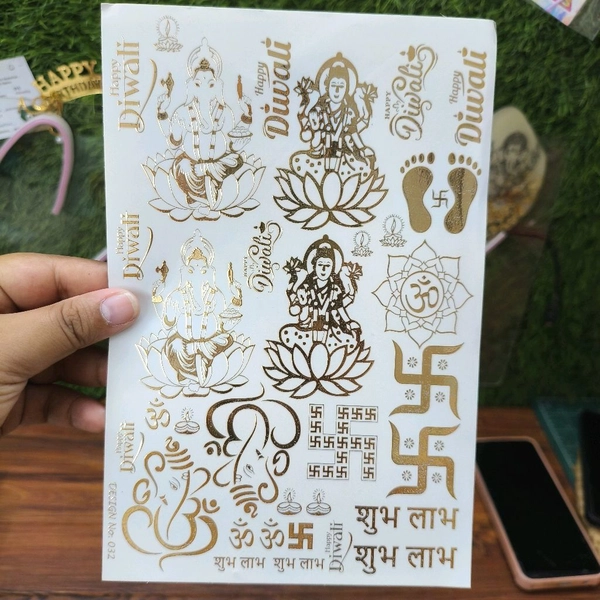 HAPPY
BIRTHDAY
Happy
Diwali
Happy
Diwali
HAPPY
Diwali
Happy
Diwali
Happy
Diwali
HAPPY
Diwali
ॐ
ॐ
Happy
Diwali
ॐ ॐ
शुभ लाभ शुभ लाभ
Happy
Diwali
शुभ लाभ
शुभ लाभ
DESIGN No. 032